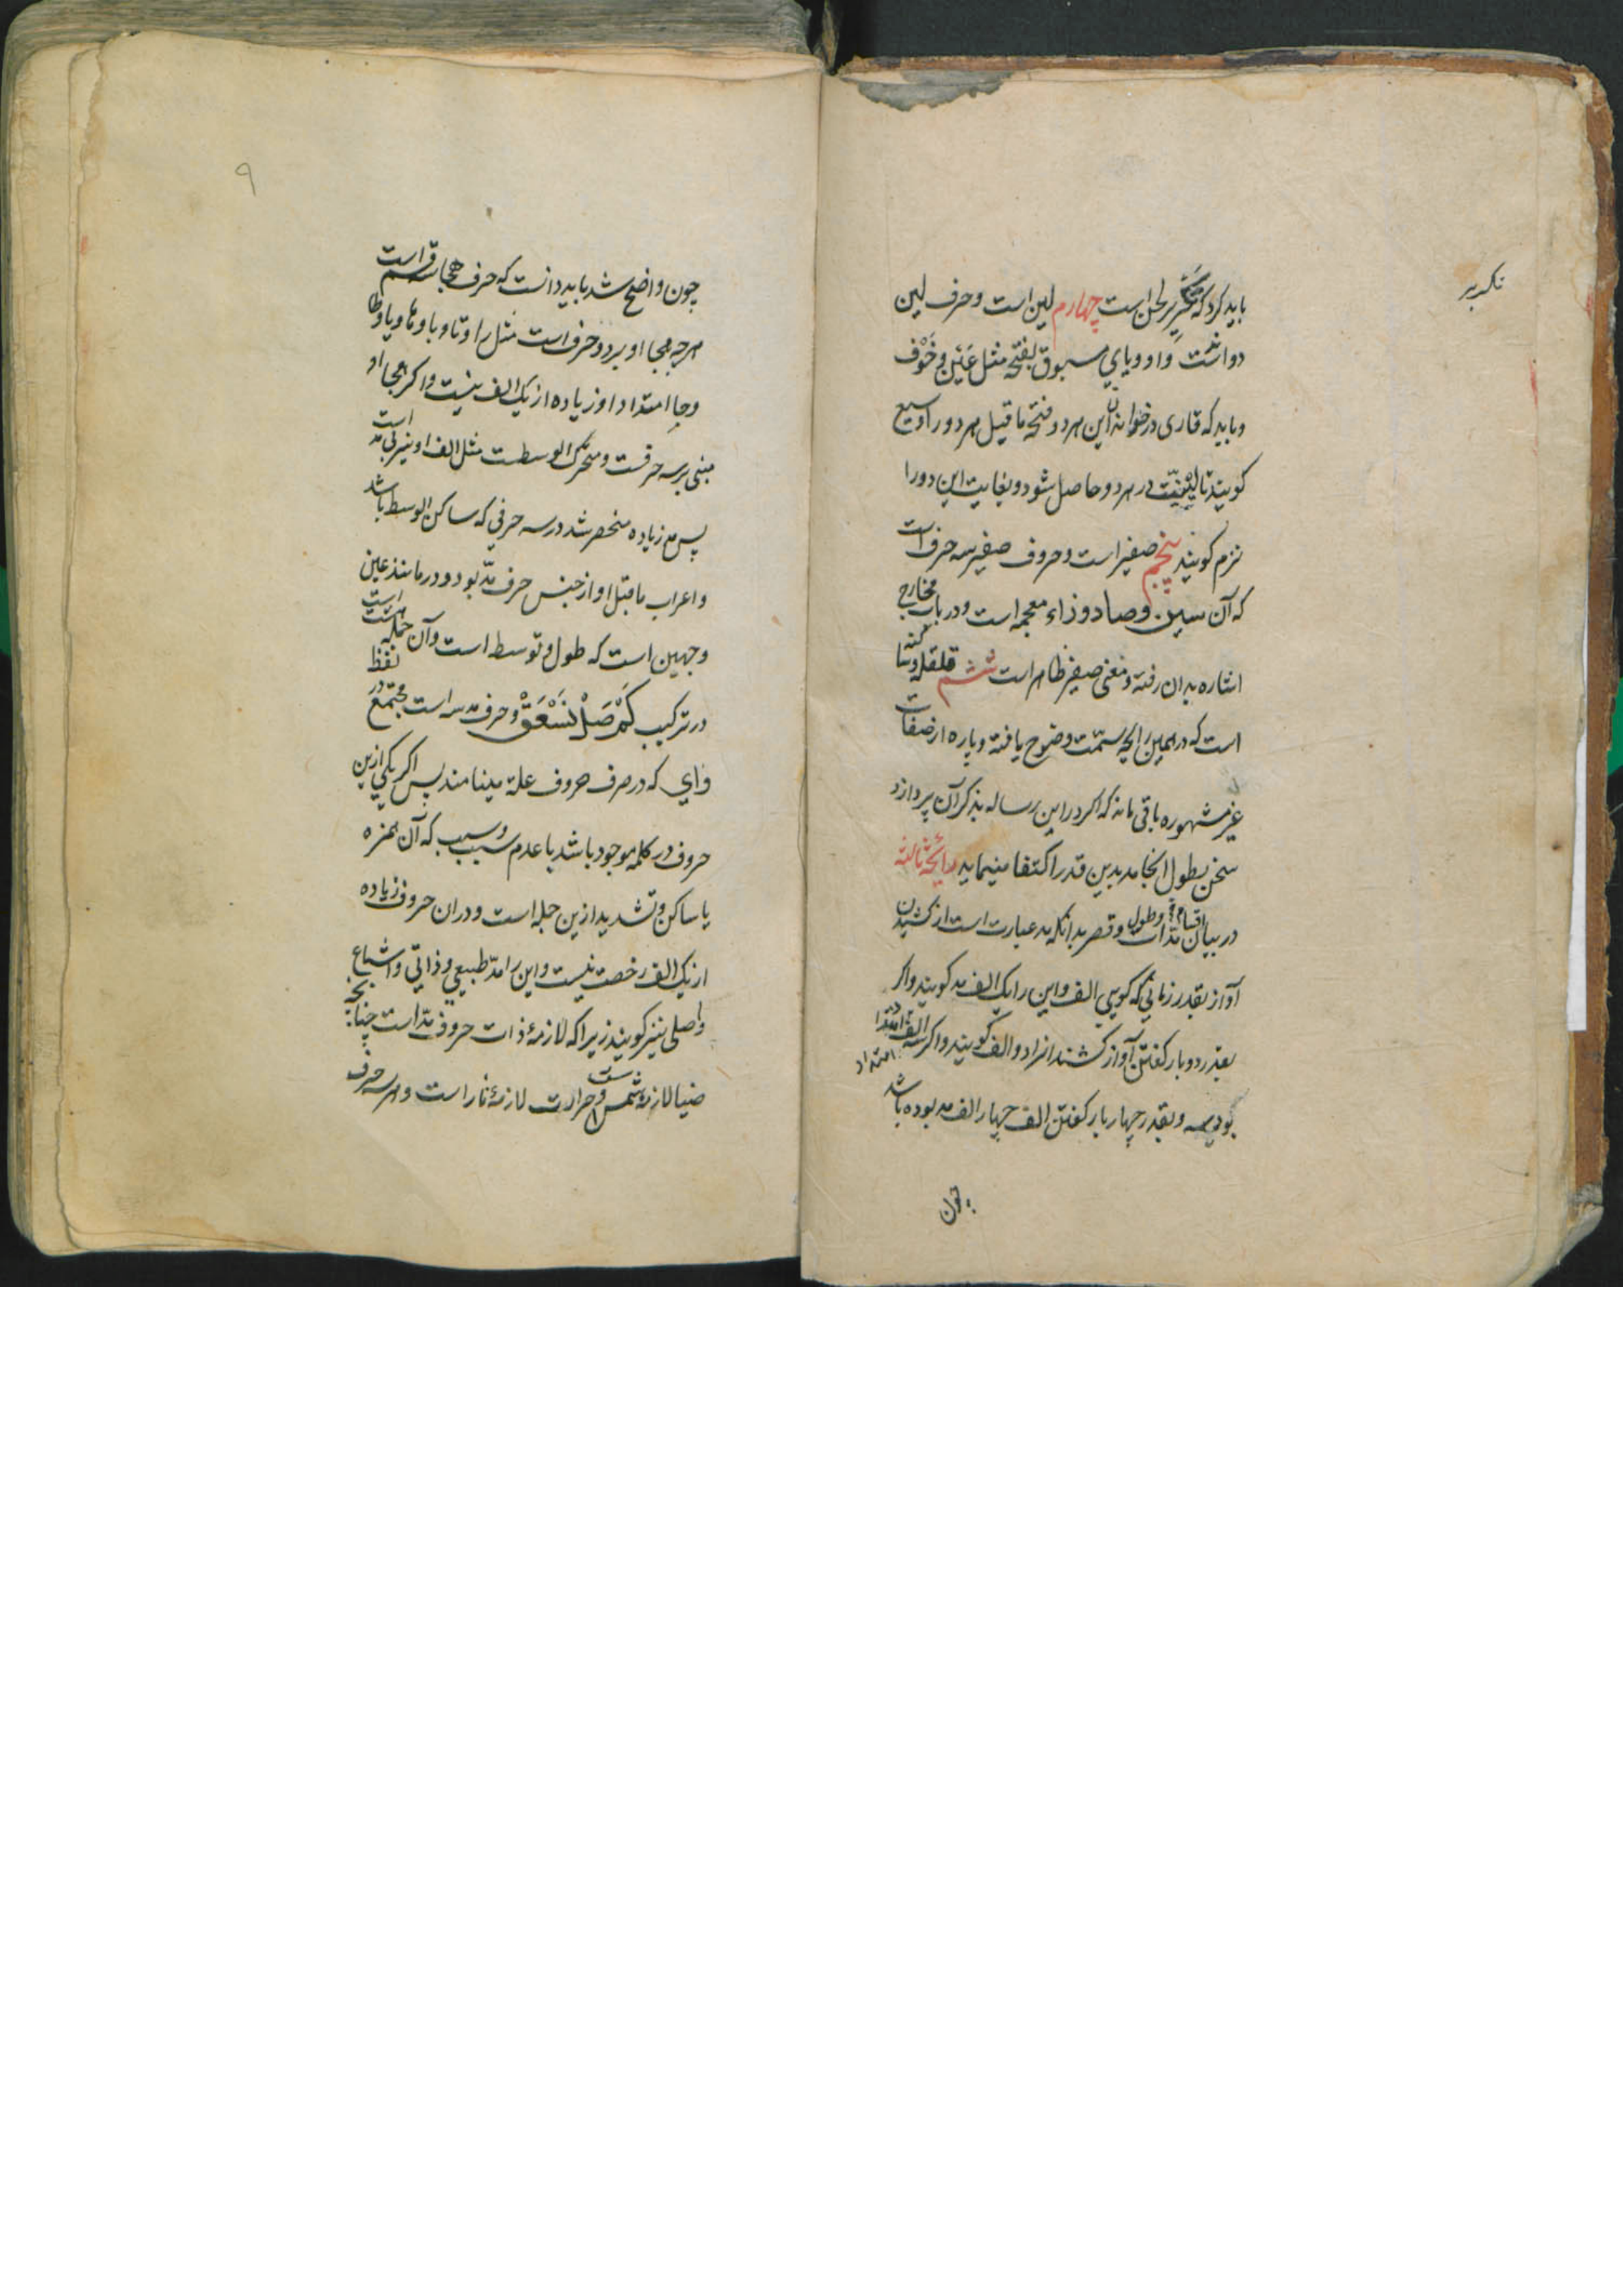 تکریر
باید کرد که تکریر لحن است چهارم لین است و حرف لین
دو است واو و یای مسبوق بفتحه مثل عَیْن و خَوْف
و باید که قاری در خواندن این هر دو فتحه ما قبل هر دو را وسیع
کویند تا لینیّت در هر دو حاصل شود و بغایت این دو را
نرم کویند پنجم صفیر است و حروف صفیر سه حرف است
که آن سین و صاد و زاء معجمه است و در باب مخارج
اشاره بدان رفته و معنی صفیر ظاهر است ششم قلقله
است که در همین رایحه سمت وضوح یافته و پاره از صفات
غیر مشهوره باقی مانده که اکر در این رساله بذکر آن پردازد
سخن بطول انجامد بدین قدر اکتفا مینماید رایحهٔ ثالثه
در بیان اقسام مدّات و طول و قصر بدانکه مد عبارت است از کشیدن
آواز بقدر زمانی که کویی الف و این را یک الف مد کویند و اکر
بقدر دو بار کفتن آواز کشند انرا دو الف کویند و اکر سه الف
امتداد
بود سه و بقدر چهار بار کفتن الف چهار الف مد بوده باشد
چون
۹
چون واضح شد باید دانست که حرف هجا سه قسم است
هر چه هجا او بر دو حرف است مثل را و تا و با و ها و یا و طا
و حا امتداد او زیاده از یک الف نیست و اکر هجا او
مبنی بر سه حرفست و متحرک الوسطست مثل الف او نیز بی مد است
پس مد زیاده منحصر شد در سه حرفی که ساکن الوسط باشد
و اعراب ما قبل او از جنس حرف مدّ بود و در مانند عین
وجهین است که طول و توسط است و آن جمله هشت است
در ترکیب کَمْ صَلْ نَسْعَقْ و حرف مد سه است مجتمع در لفظ
وای که در صرف حروف علة مینامند پس اکر یکی ازین
حروف در کلمه موجود باشد با عدم سبب و سبب که آن همزه
یا ساکن و تشدید ازین جمله است و در ان حروف زیاده
از یک الف رخصت نیست و این را مدّ طبیعی و ذاتی و اشباع
و اصلی نیز کویند زیرا که لازمهٔ ذات حروف مدّ است چنانچه
ضیا لازمهٔ شمس است و حرارت لازمهٔ نار است و هر سه حرف